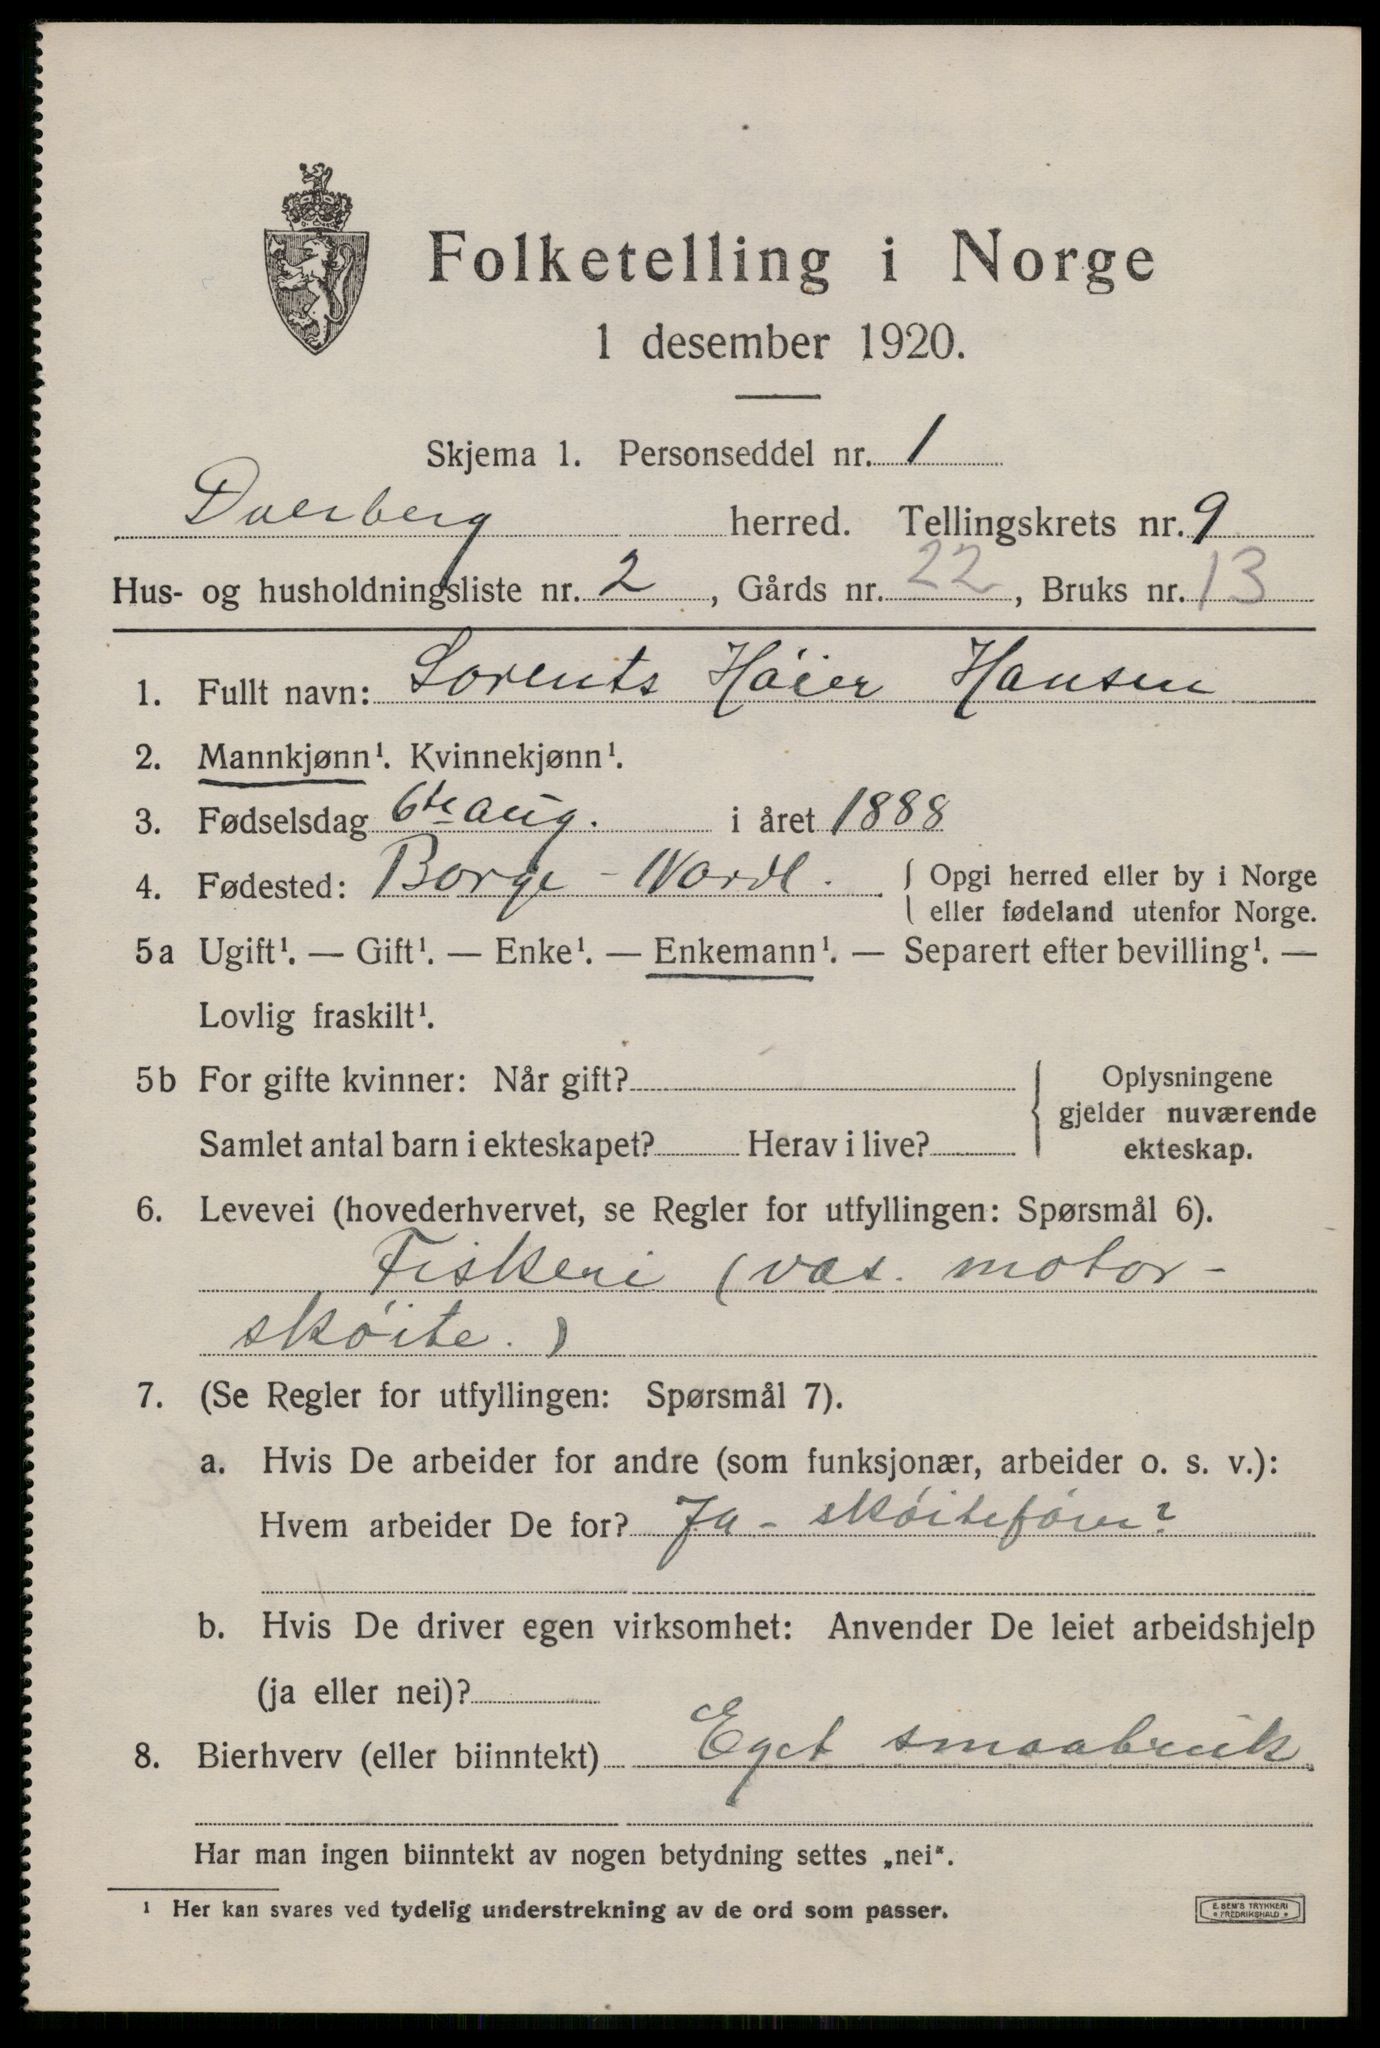 Folketelling i Norge
1 desember 1920.
Skjema 1. Personseddel nr. 1
Dverberg herred. Tellingskrets nr. 9
Hus- og husholdningsliste nr. 2, Gårds nr. 22, Bruks nr. 13
1. Fullt navn: Lorents Høier Hansen
2. Mannkjønn¹. Kvinnekjønn¹.
3. Fødselsdag 6te aug. i året 1888
4. Fødested: Borge - Nordl. { Opgi herred eller by i Norge
eller fødeland utenfor Norge.
5a Ugift¹. — Gift¹. — Enke¹. — Enkemann¹. — Separert efter bevilling¹. —
Lovlig fraskilt¹.
5b For gifte kvinner: Når gift? Oplysningene
gjelder nuværende
Samlet antal barn i ekteskapet? Herav i live? ekteskap.
6. Levevei (hovederhvervet, se Regler for utfyllingen: Spørsmål 6).
Fiskeri (væs. motor-
skøite.)
7. (Se Regler for utfyllingen: Spørsmål 7).
a. Hvis De arbeider for andre (som funksjonær, arbeider o. s. v.):
Hvem arbeider De for? Ja - skøitefører?
b. Hvis De driver egen virksomhet: Anvender De leiet arbeidshjelp
(ja eller nei)?
8. Bierhverv (eller biinntekt) Eget smaabruk.
Har man ingen biinntekt av nogen betydning settes „nei".
¹ Her kan svares ved tydelig understrekning av de ord som passer.
E. SEM'S TRYKKERI
* FREDRIKSHALD *